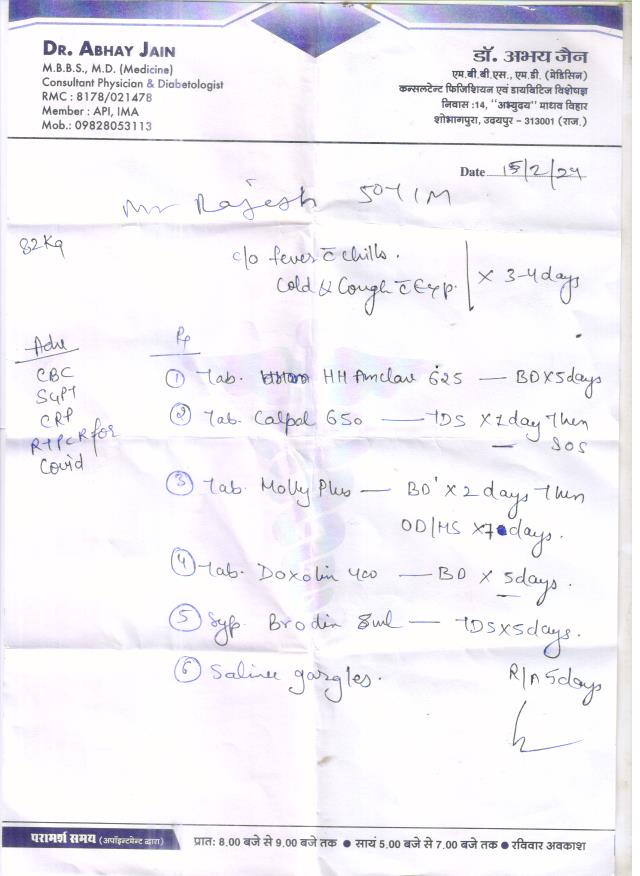 DR. ABHAY JAIN
M.B.B.S., M.D. (Medicine)
Consultant Physician & Diabetologist
RMC : 8178/021478
Member : API, IMA
Mob.: 09828053113
डॉ. अभय जैन
एम.बी.बी.एस., एम.डी. (मेडिसिन)
कन्सलटेन्ट फिजिशियन एवं डायबिटिज विशेषज्ञ
निवास :14, "अभ्युदय" माधव विहार
शोभागपुरा, उदयपुर - 313001 (राज.)
Date 15/2/24
Mr Rajesh 50Y/M
82Kg
c/o fever c̄ chills.
Cold & Cough c̄ Exp. × 3-4 days
Adv
CBC
SGPT
CRP
RTPCR for
Covid
Rx
① Tab. HH Amclav 625 — BD×5days
② Tab. Calpal 650 — TDS ×1day Then
SOS
③ Tab. Molly Plus — BD × 2 days Then
OD/HS ×7 days.
④ Tab. Doxolin 400 — BD × 5days.
⑤ Syp. Brodin 8ml — TDS×5days.
⑥ Saline gargles.
R/A 5days
परामर्श समय (अपॉइन्टमेन्ट द्वारा) प्रात: 8.00 बजे से 9.00 बजे तक ● सायं 5.00 बजे से 7.00 बजे तक ● रविवार अवकाश